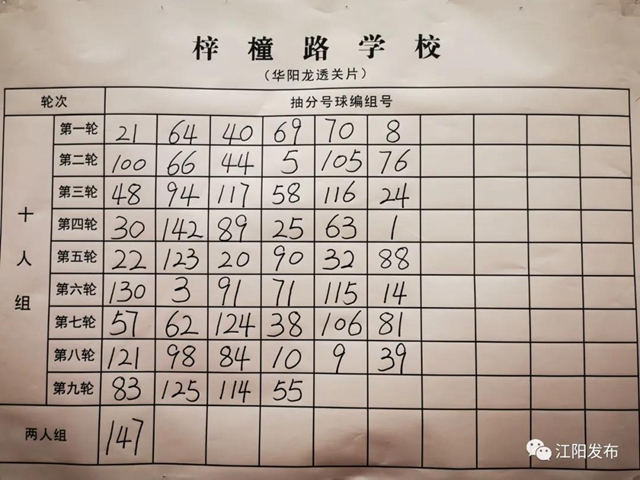 梓橦路学校
（华阳龙透关片）
轮次 抽分号球编组号
十人组
第一轮 21 64 40 69 70 8
第二轮 100 66 44 5 105 76
第三轮 48 94 117 58 116 24
第四轮 30 142 89 25 63 1
第五轮 22 123 20 90 32 88
第六轮 130 3 91 71 115 14
第七轮 57 62 124 38 106 81
第八轮 121 98 84 10 9 39
第九轮 83 125 114 55
两人组 147
江阳发布